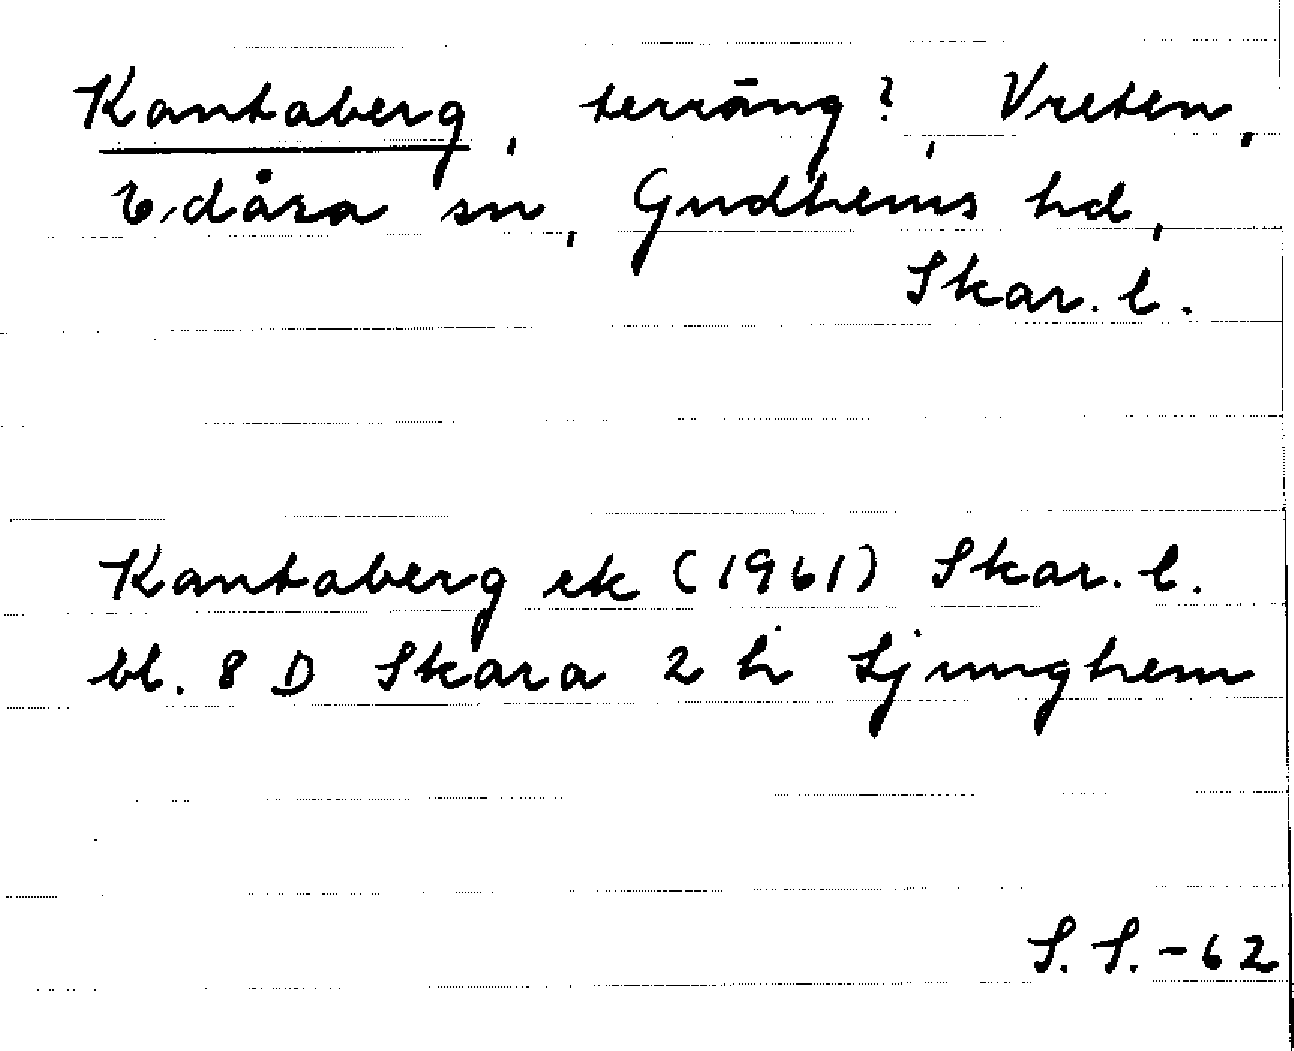 Kantaberg, terräng? Vreten,
Edåsa sn, Gudhems hd,
Skar. l.
Kantaberg ek (1961) Skar. l.
bl. 8 D Skara 2 h Ljunghem
S. S. -62